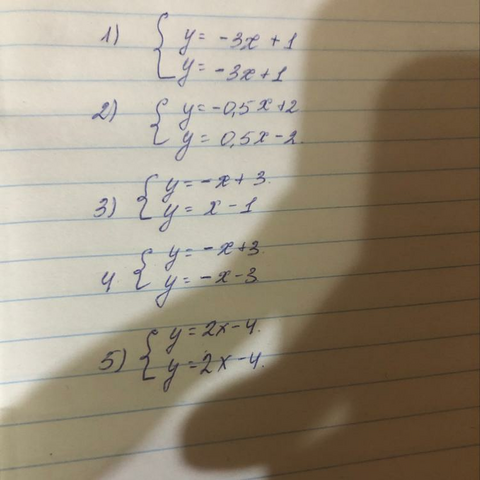 1) { y = -3x + 1
y = -3x+1
2) { y = -0,5x+2
y = 0,5x-2.
3) { y = -x + 3.
y = x - 1
4 { y = -x+3.
y = -x-3
5) { y = 2x-4.
y = 2x-4.